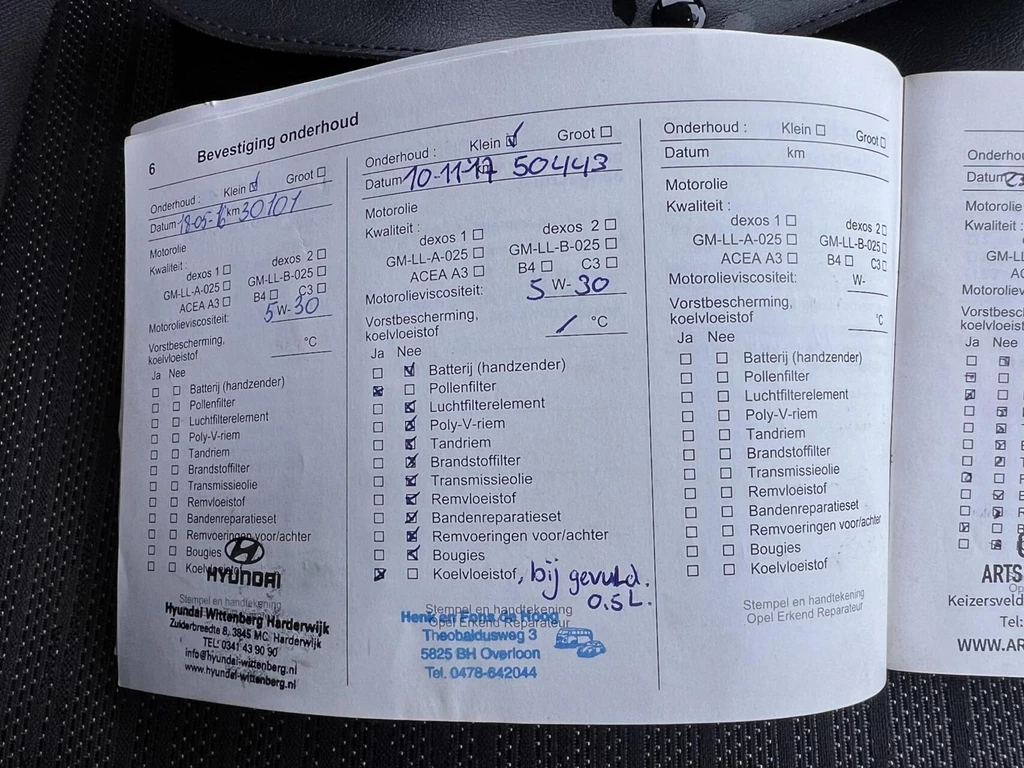 6 Bevestiging onderhoud
Onderhoud : Klein ☑ Groot ☐
Datum 18-05-16 km 30101
Motorolie
Kwaliteit :
dexos 1 ☐ dexos 2 ☐
GM-LL-A-025 ☐ GM-LL-B-025 ☐
ACEA A3 ☐ B4 ☐ C3 ☐
Motorolieviscositeit: 5 W- 30
Vorstbescherming,
koelvloeistof °C
Ja Nee
☐ ☐ Batterij (handzender)
☐ ☐ Pollenfilter
☐ ☐ Luchtfilterelement
☐ ☐ Poly-V-riem
☐ ☐ Tandriem
☐ ☐ Brandstoffilter
☐ ☐ Transmissieolie
☐ ☐ Remvloeistof
☐ ☐ Bandenreparatieset
☐ ☐ Remvoeringen voor/achter
☐ ☐ Bougies
☐ ☐ Koelvloeistof
HYUNDAI
Stempel en handtekening
Hyundai Wittenberg Harderwijk
Zuiderbreedte 8, 3845 MC Harderwijk
TEL: 0341 43 90 90
info@hyundai-wittenberg.nl
www.hyundai-wittenberg.nl
Onderhoud : Klein ☑ Groot ☐
Datum 10-11-17 km 50443
Motorolie
Kwaliteit :
dexos 1 ☐ dexos 2 ☐
GM-LL-A-025 ☐ GM-LL-B-025 ☐
ACEA A3 ☐ B4 ☐ C3 ☐
Motorolieviscositeit: 5 W- 30
Vorstbescherming,
koelvloeistof / °C
Ja Nee
☐ ☑ Batterij (handzender)
☒ ☐ Pollenfilter
☐ ☒ Luchtfilterelement
☐ ☒ Poly-V-riem
☐ ☒ Tandriem
☐ ☒ Brandstoffilter
☐ ☒ Transmissieolie
☐ ☒ Remvloeistof
☐ ☒ Bandenreparatieset
☐ ☒ Remvoeringen voor/achter
☐ ☒ Bougies
☒ ☐ Koelvloeistof, bij gevuld.
0.5L.
Stempel en handtekening
Opel Erkend Reparateur
Henk en Fons de Hoog
Theobaldusweg 3
5825 BH Overloon
Tel. 0478-642044
Onderhoud : Klein ☐ Groot ☐
Datum km
Motorolie
Kwaliteit :
dexos 1 ☐ dexos 2 ☐
GM-LL-A-025 ☐ GM-LL-B-025 ☐
ACEA A3 ☐ B4 ☐ C3 ☐
Motorolieviscositeit: W-
Vorstbescherming,
koelvloeistof °C
Ja Nee
☐ ☐ Batterij (handzender)
☐ ☐ Pollenfilter
☐ ☐ Luchtfilterelement
☐ ☐ Poly-V-riem
☐ ☐ Tandriem
☐ ☐ Brandstoffilter
☐ ☐ Transmissieolie
☐ ☐ Remvloeistof
☐ ☐ Bandenreparatieset
☐ ☐ Remvoeringen voor/achter
☐ ☐ Bougies
☐ ☐ Koelvloeistof
Stempel en handtekening
Opel Erkend Reparateur
Onderho
Datum
Motorolie
Kwaliteit :
GM-LL
ACEA
Motorolievi
Vorstbesche
koelvloeisto
Ja Nee
ARTS
Keizersveld
Tel:
WWW.AR